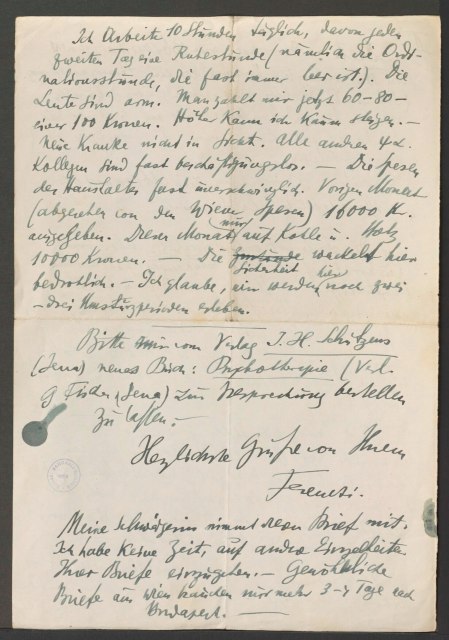 Ich Arbeite 10 Stunden täglich, davon jeden
zweiten Tag eine Ruhestunde (nämlich die Ordi-
nationsstunde, die fast immer leer ist.). Die
Leute sind arm. Man zahlt mir jetzt 60–80–
einer 100 Kronen. Höher kann ich kaum steigen. –
Neue Kranke nicht in Sicht. Alle andren ψα.
Kollegen sind fast beschäftigungslos. – Die Spesen
des Haushaltes fast unerschwinglich. Vorigen Monat
(abgesehen von den Wiener Spesen) 16000 Kr.
ausgegeben. Diesen Monat nur auf Kohle u. Holz
10000 Kronen. – Die Sicherheit wackelt hier
bedrohlich. – Ich glaube, wir werden hier noch zwei
– drei Umsturzperioden erleben.
Bitte mir vom Verlag I. H. Schultzens
(Jena) neues Buch: Psychotherapie (Verl.
G Fischer, Jena) zur Besprechung bestellen
zu lassen. –
Herzlichste Grüße von Ihrem
Ferenczi.
Meine Schwägerin nimmt diesen Brief mit.
Ich habe keine Zeit, auf andre Einzelheiten
Ihrer Briefe einzugehen. – Gewöhnliche
Briefe aus Wien brauchen nur mehr 3–4 Tage nach
Budapest. –